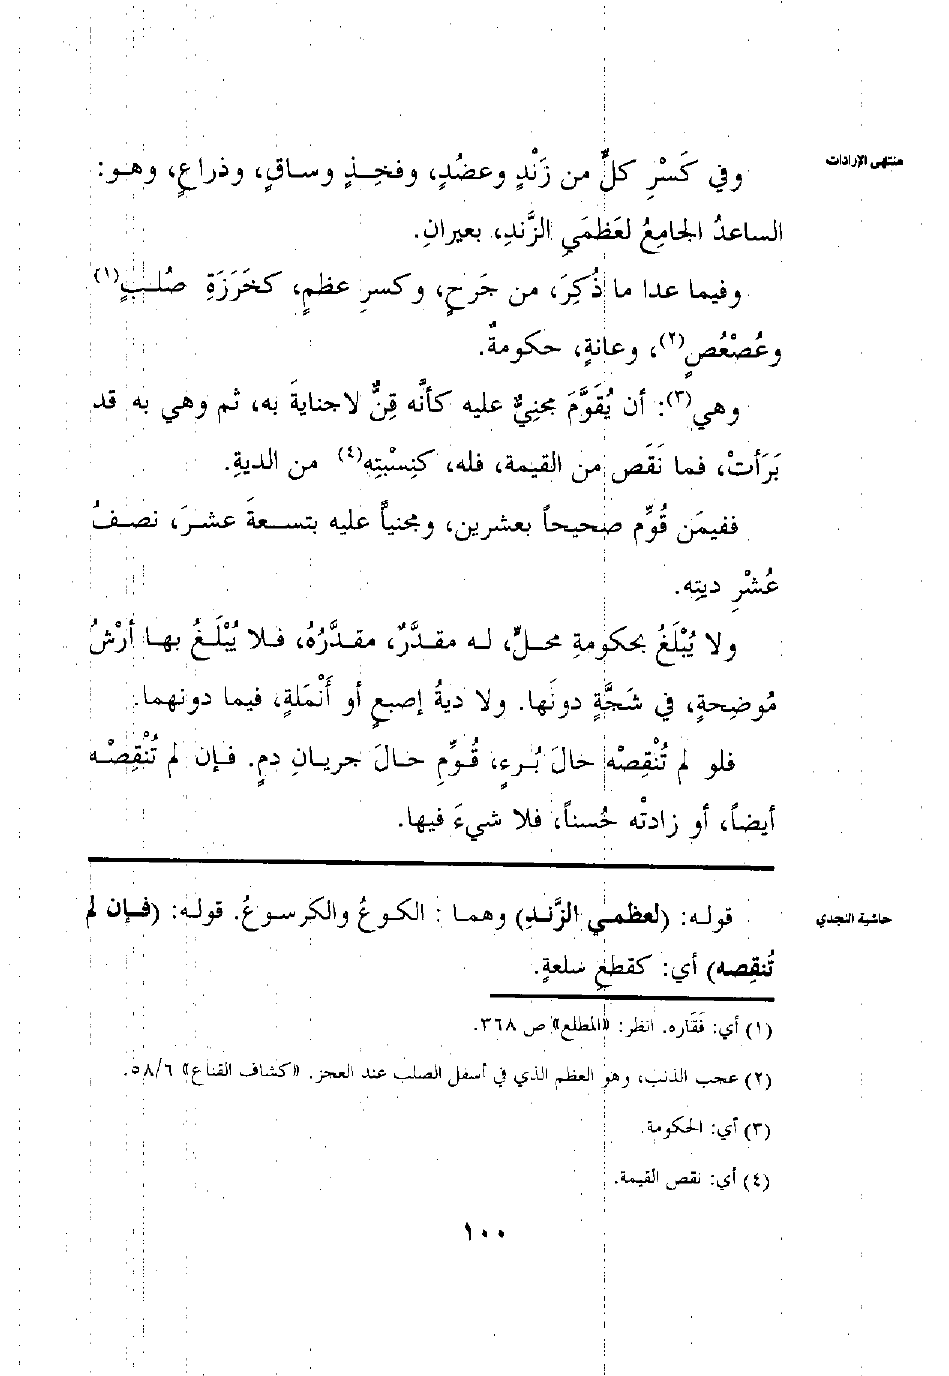 منتهى الإرادات
وفي كَسْرِ كلٍّ من زَنْدٍ وعضُدٍ، وفخِـذٍ وسـاقٍ، وذراعٍ، وهـو:
الساعدُ الجامِعُ لعَظمَيِ الزَّندِ، بعيرانِ.
وفيما عدا ما ذُكِرَ، من جَرحٍ، وكسرِ عظمٍ، كخَرَزَةِ صُلـبٍ(١)
وعُصْعُصٍ(٢)، وعانةٍ، حكومةٌ.
وهي(٣): أن يُقَوَّمَ مجنِيٌّ عليه كأنَّه قِنٌّ لاجنايةَ به، ثم وهي به قد
بَرَأتْ، فما نَقَص من القيمة، فله، كنِسْبتِه(٤) من الديةِ.
ففيمَن قُوِّم صحيحاً بعشرين، ومجنياًّ عليه بتسـعةَ عشـرَ، نصـفُ
عُشْرِ ديتِه.
ولا يُبْلَغُ بحكومةِ محـلٍّ، لـه مقـدَّرٌ، مقـدَّرُهُ، فـلا يُبْلَـغُ بهـا أرْشُ
مُوضِحةٍ، في شَجَّةٍ دونَها. ولا ديةُ إصبعٍ أو أَنْمَلةٍ، فيما دونهما.
فلو لم تُنْقِصْه حالَ بُرءٍ، قُوِّمِ حـالَ جريـانِ دمٍ. فـإن لم تُنْقِصْـه
أيضاً، أو زادتْه حُسناً، فلا شيءَ فيها.
حاشية النجدي
قولـه: (لعظمـي الزَّنـدِ) وهمـا : الكـوعُ والكرسـوعُ. قولـه: (فـإن لم
تُنقِصه) أي: كقطعِ سَلعةٍ.
(١) أي: فَقَاره. انظر: «المطلع» ص ٣٦٨.
(٢) عجب الذنب، وهو العظم الذي في أسفل الصلب عند العجز. «كشاف القناع» ٥٨/٦.
(٣) أي: الحكومة.
(٤) أي: نقص القيمة.
١٠٠